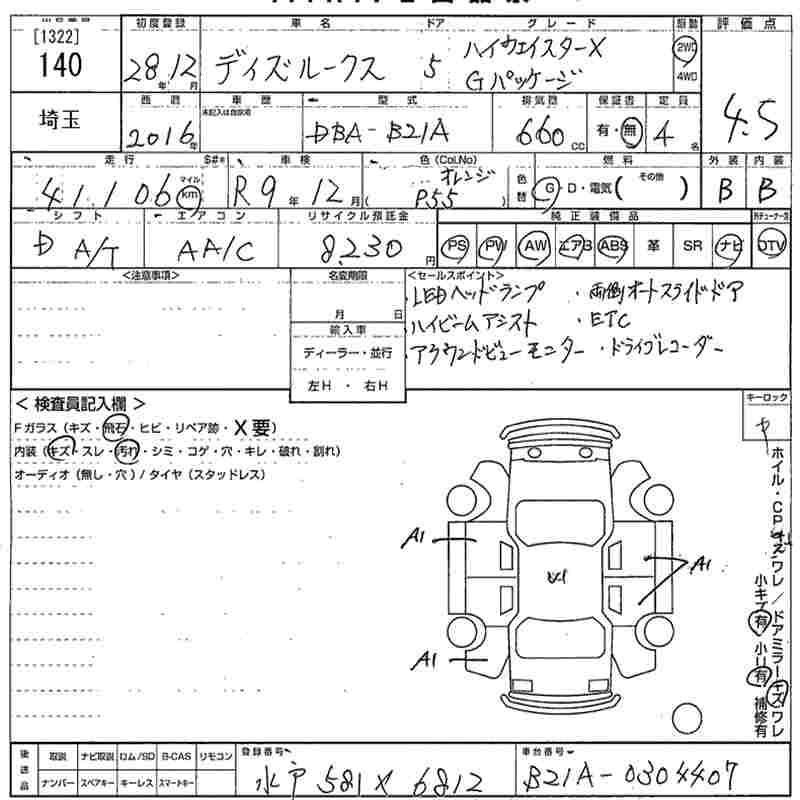 [1322]
140
埼玉
初度登録 車名 ドア グレード 駆動 評価点
28年12月 ディズルークス 5 ハイウェイスターX
Gパッケージ
2WD
4WD
4.5
西暦 車歴 型式 排気量 保証書 定員
未記入は自家用
2016年 DBA-B21A 660cc 有・無 4名
走行 S#* 車検 色(Col.No) 燃料 外装 内装
41,106 マイル km R9年12月 オレンジ
(P55) 色替 G・D・電気( その他 ) B B
シフト エアコン リサイクル預託金 純正装備品
D A/T AA/C 8,230円 PS PW AW エアB ABS 革 SR ナビ DTV
<注意事項> 名変期限 <セールスポイント>
月 日
輸入車
ディーラー・並行
左H ・ 右H
・LEDヘッドランプ ・両側オートスライドドア
・ハイビームアシスト ・ETC
・アラウンドビューモニター ・ドライブレコーダー
< 検査員記入欄 >
Fガラス (キズ・飛石・ヒビ・リペア跡・X要)
内装 (キズ・スレ・汚れ・シミ・コゲ・穴・キレ・破れ・割れ)
オーディオ (無し・穴) / タイヤ (スタッドレス)
キーロック
A1
A1
A1
ホイル・CPキズワレ/ドアミラーキズワレ
小キズ有 小リ有 補修有
後送品 取説 ナビ取説 ロム/SD B-CAS リモコン
ナンバー スペアキー キーレス スマートキー
登録番号 車台番号
水戸 581 X 6812 B21A-0304407